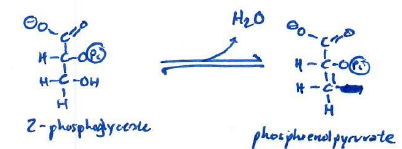 H₂O
⊖O O
C
H-C-O Pi
H-C-OH
H
2-phosphoglycerate
⊖O O
C
H-C-O Pi
H-C
H
phosphoenolpyruvate